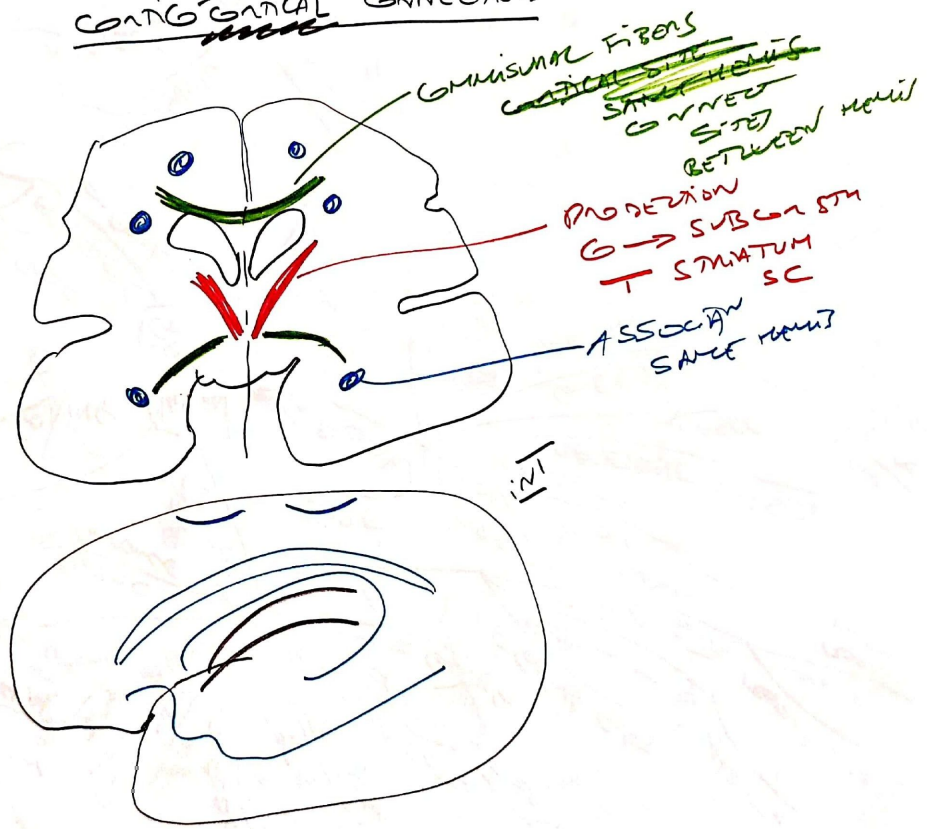 CORTICO CORTICAL
COMMISURAL FIBERS
CORTICAL SITE
SAME HEMIS
CONNECT
SITES
BETWEEN HEMIS
PROJECTION
C → SUBCOR STR
T STRIATUM
SC
ASSOCIAN
SAME HEMIS
INT